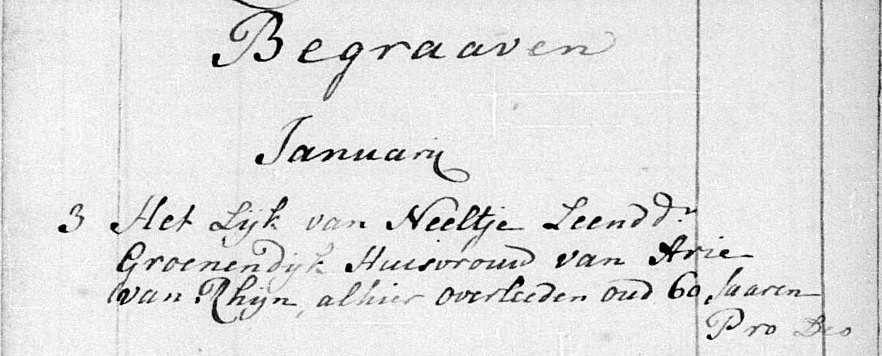 Begraaven
Januarij
3 Het Lijk van Neeltje Leenddr
Groenendijk Huisvrouw van Arie
van Rhijn, alhier overleeden oud 60 Jaaren
Pro Deo